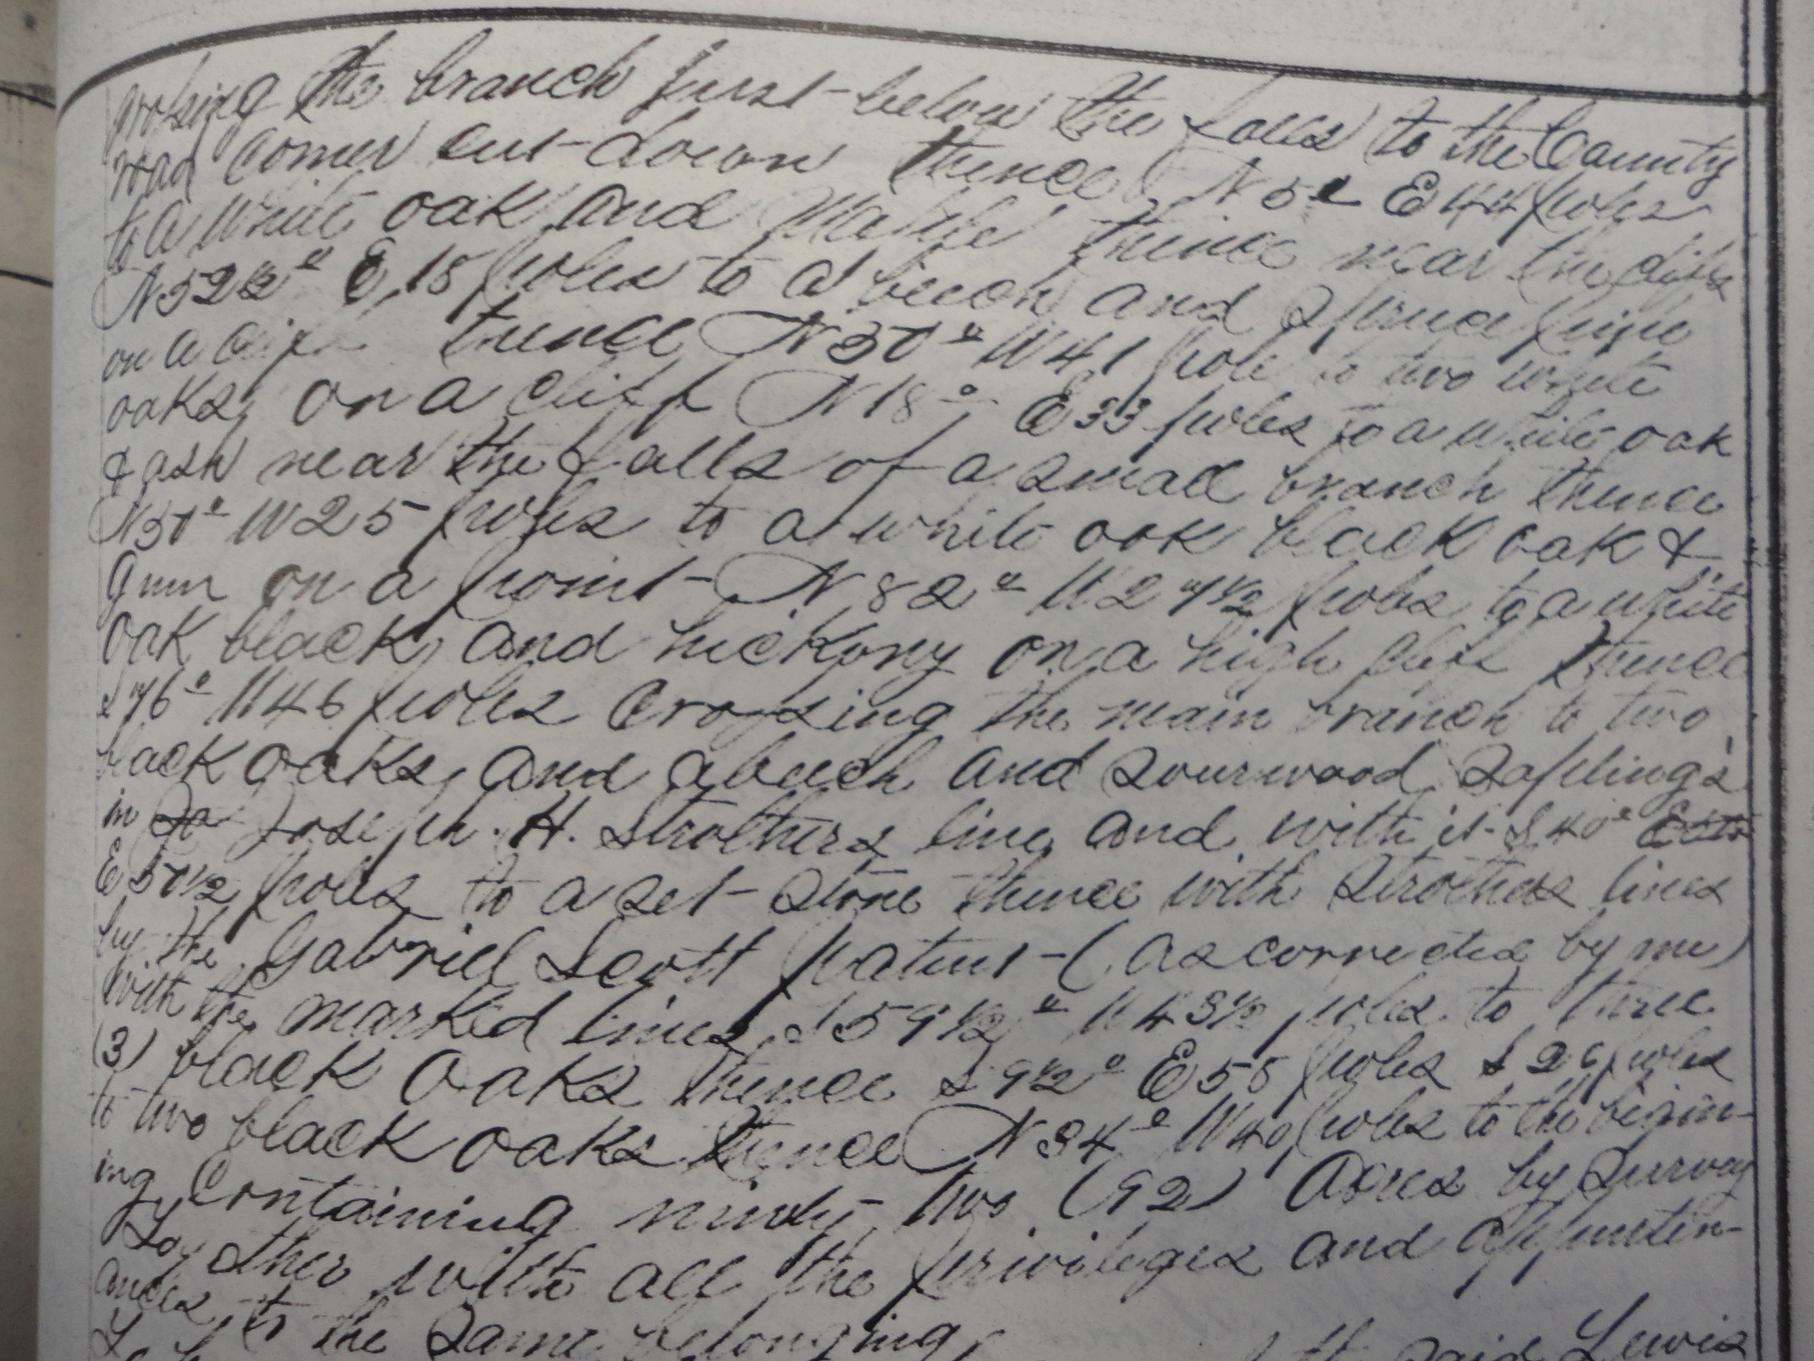 crossing the branch just below the falls to the County
road corner cut down thence N 52 E 44 poles
to a white oak and Maple thence near the cliffs
N 52½° E 18 poles to a beech and Spruce pine
on a cliff thence N 30° W 41 pole to two white
oaks, on a cliff N 18° E 33 poles to a white oak
& ash near the falls of a small branch thence
N 50° W 25 poles to a white oak black oak &
Gum on a point N 82° W 27½ poles to a white
oak black, and hickory on a high cliff thence
S 76° W 46 poles Crossing the main branch to two
black oaks, and a beech and sourwood saplings
in Joseph H. Strothers line, and with it S 40°
E 50½ poles to a set stone thence with Strothers lines
by the Gabriel Scott Patent (as corrected by me)
with the marked lines, S 59½° W 43½ poles to three
(3) black oaks thence S 9½° E 58 poles S 26 poles
to two black oaks thence N 34° W 40 poles to the begin-
ing Containing ninty two (92) Acres by Survey
Together with all the privileges and appurten-
ances to the same belonging,
said Lewis